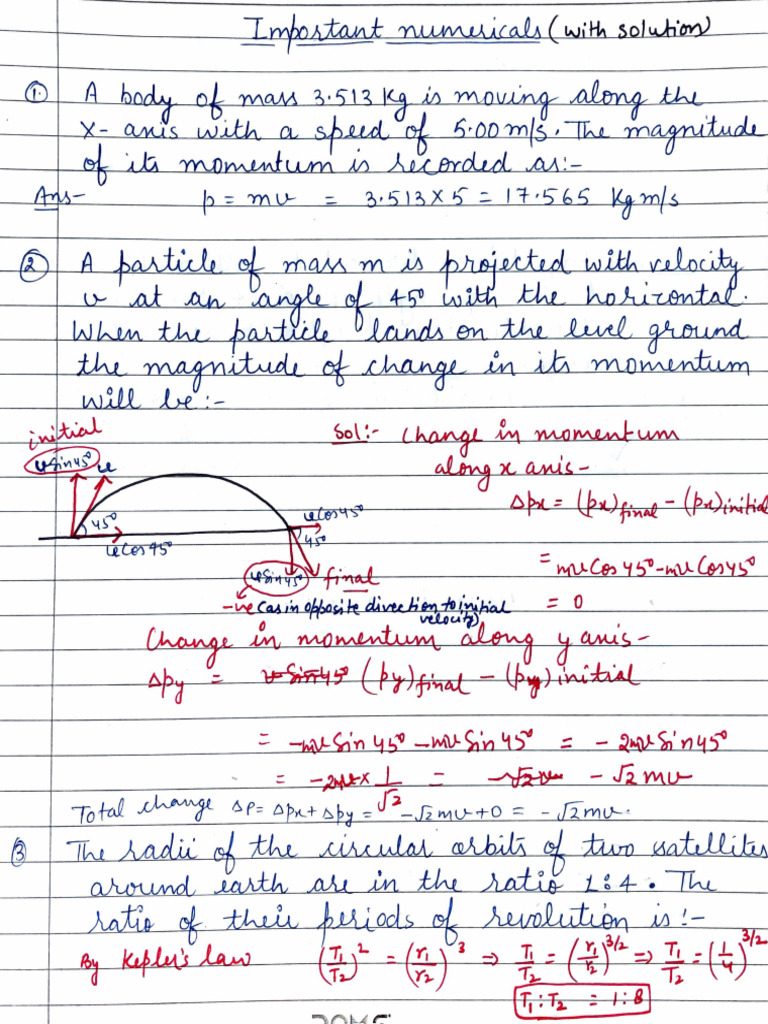 Important numericals (with solution)
① A body of mass 3.513 Kg is moving along the
X-axis with a speed of 5.00 m/s. The magnitude
of its momentum is recorded as:-
Ans- p = mv = 3.513 × 5 = 17.565 Kg m/s
② A particle of mass m is projected with velocity
v at an angle of 45° with the horizontal.
When the particle lands on the level ground
the magnitude of change in its momentum
will be:-
initial
usin45° u
45°
ucos45°
ucos45°
45°
usin45° final
-ve (as in opposite direction to initial
velocity)
Sol:- Change in momentum
along x axis -
Δpx = (px)final - (px)initial
= mu Cos 45° - mu Cos 45°
= 0
Change in momentum along y axis -
Δpy = (py)final - (py)initial
= -mu Sin 45° - mu Sin 45° = - 2mu Sin 45°
= -2mu × 1/√2 = - √2 mu
Total change ΔP = Δpx + Δpy = -√2mu + 0 = -√2mu.
③ The radii of the circular orbits of two satellites
around earth are in the ratio 1:4. The
ratio of their periods of revolution is :-
By Kepler's law (T₁/T₂)² = (r₁/r₂)³ ⇒ T₁/T₂ = (r₁/r₂)^3/2 ⇒ T₁/T₂ = (1/4)^3/2
T₁ : T₂ = 1:8